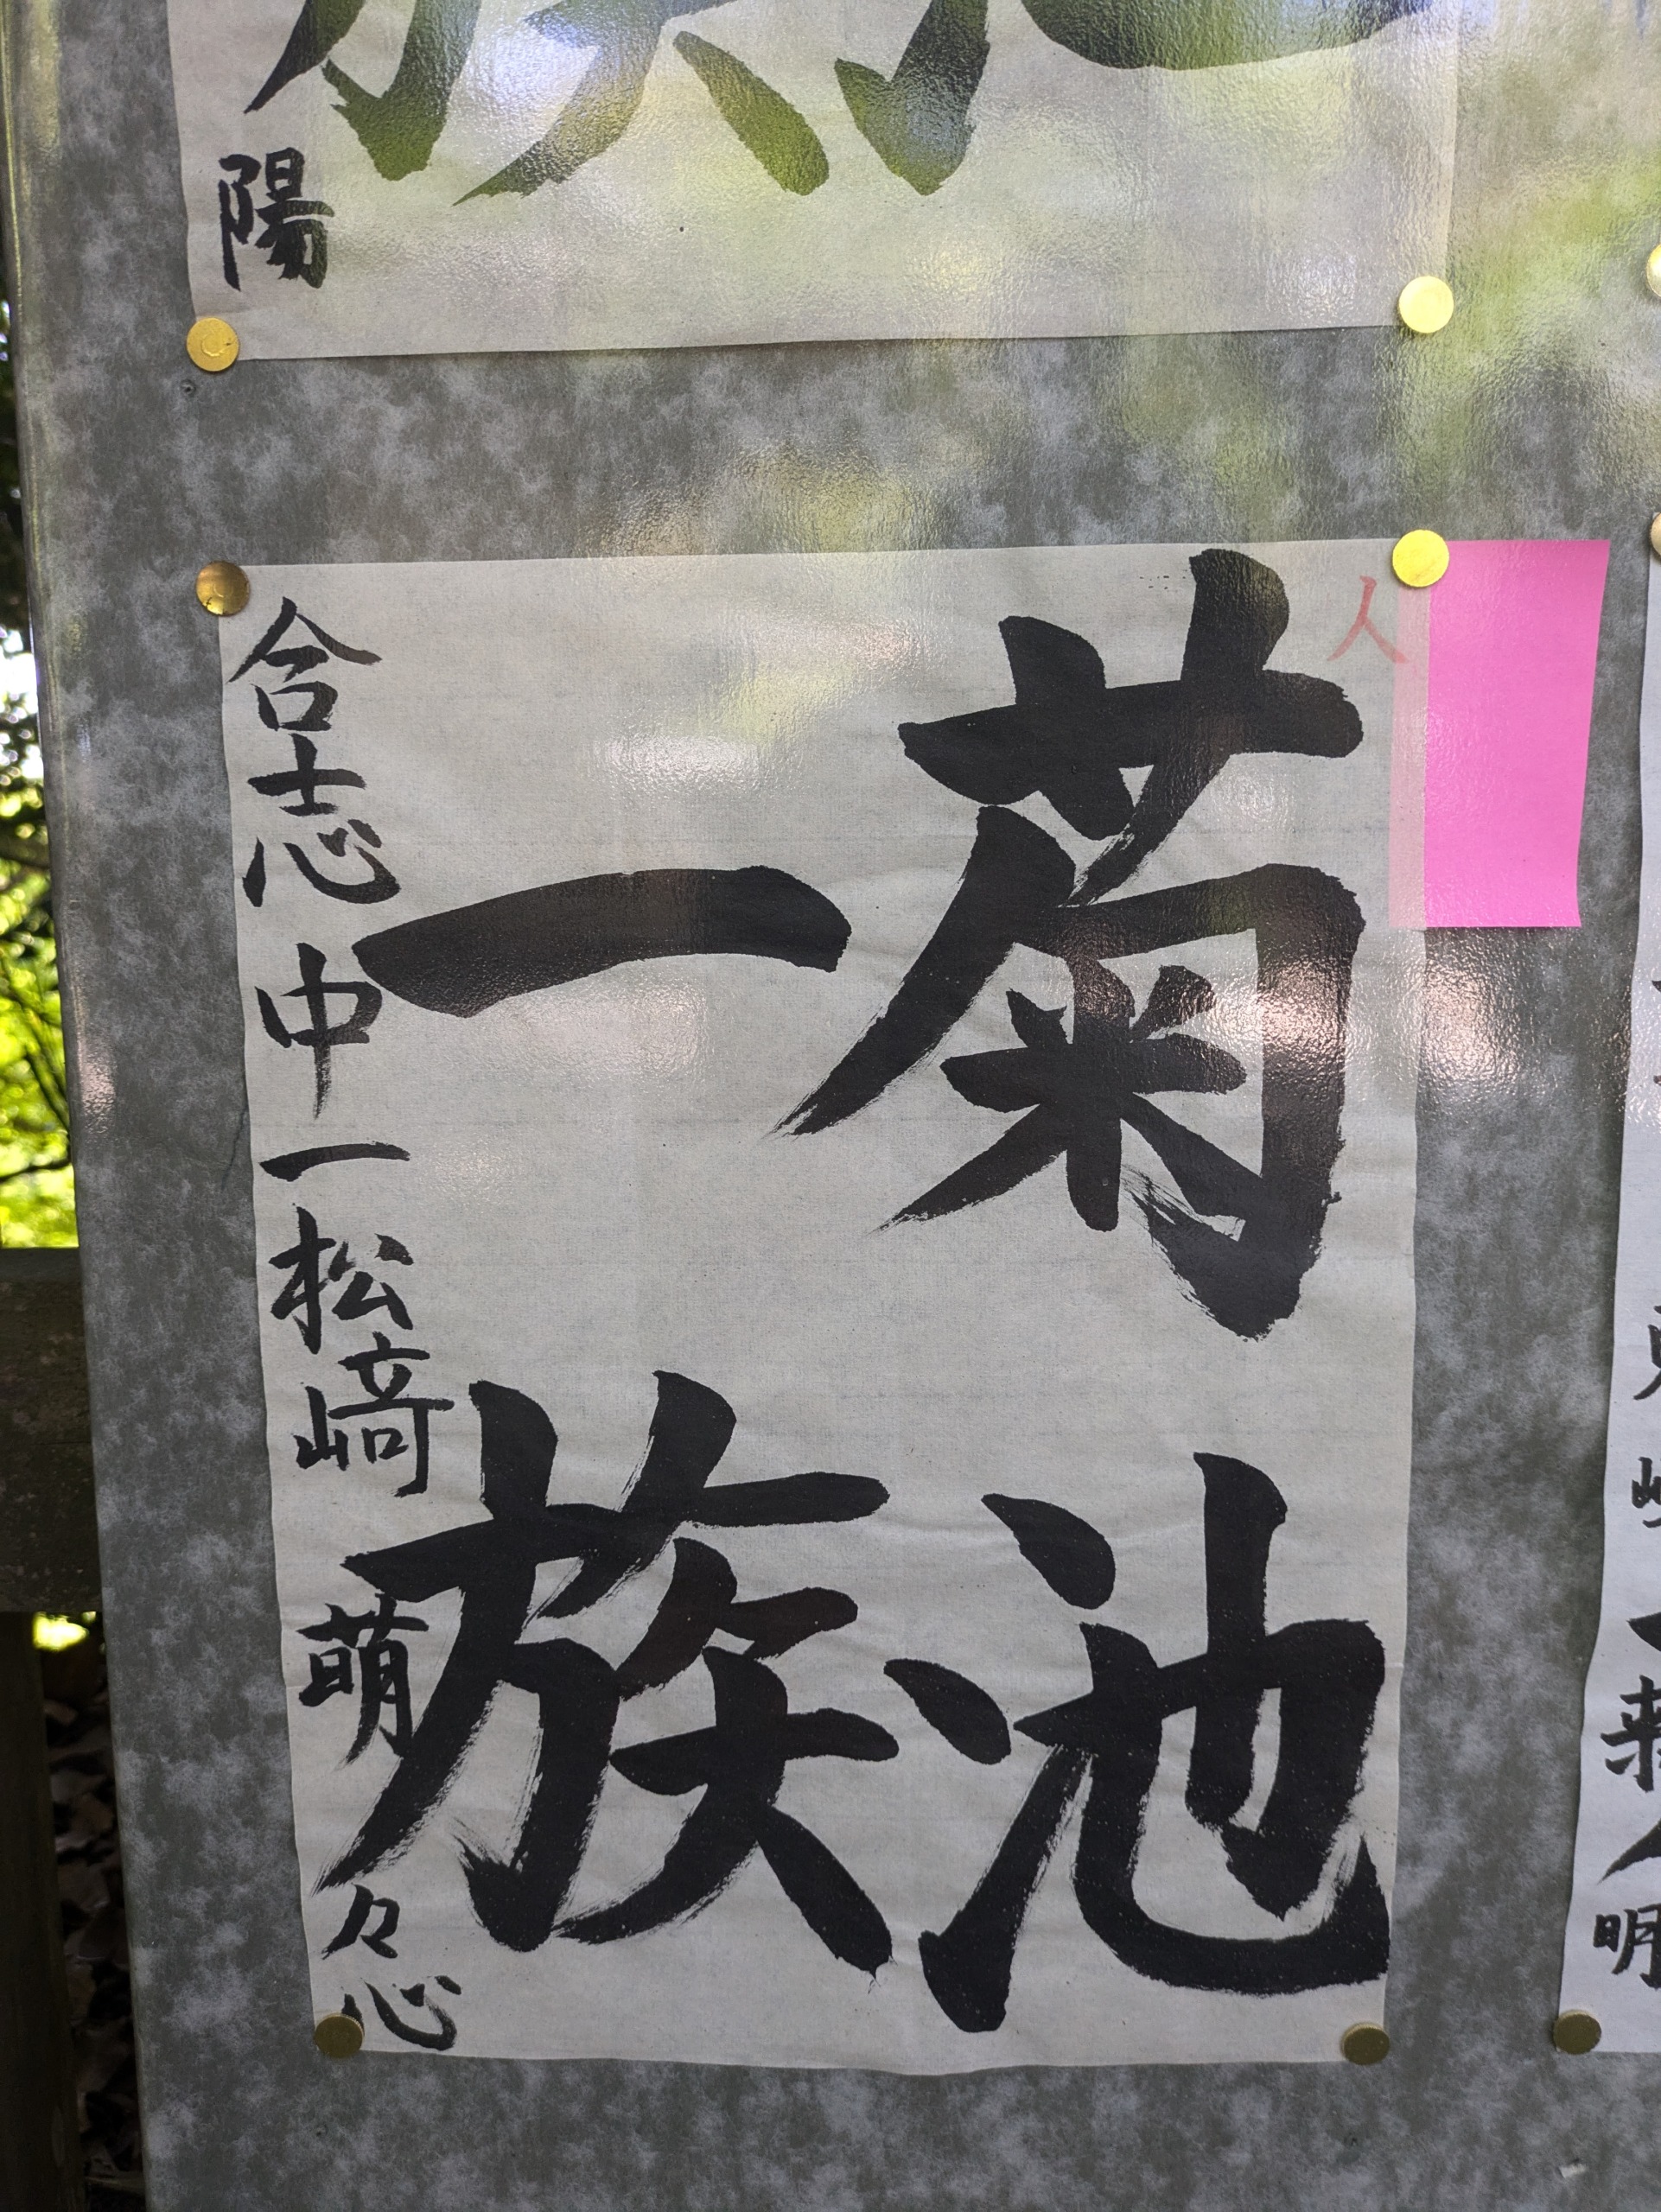 陽
人
菊池
一族
合志中一松﨑萌々心
明